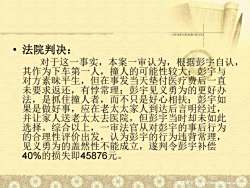 • 法院判决:
对于这一事实，本案一审认为，根据彭宇自认，
其作为下车第一人，撞人的可能性较大；彭宇与
对方素昧平生，但在事发当天垫付医疗费后一直
未要求返还，有悖常理；彭宇见义勇为的更好办
法，是抓住撞人者，而不只是好心相扶；彭宇如
果是做好事，应在老太太家人到达后言明经过，
并让家人送老太太去医院，但彭宇当时却未如此
选择。综合以上，一审法官从对彭宇的事后行为
的合理性评价出发，认为彭宇的行为违背常理，
见义勇为的盖然性不能成立，遂判令彭宇补偿
40%的损失即45876元。